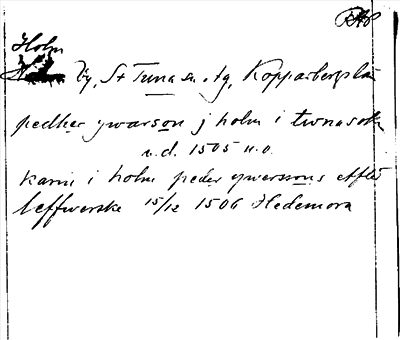 RAP
Holm
by, St Tuna sn. o. tg, Kopparbergs län
pedher ywarson j holm i twnasokn
u. d. 1505 u. o.
karin i holm peder ywerssons effter
leffwerske 15/12 1506 Hedemora